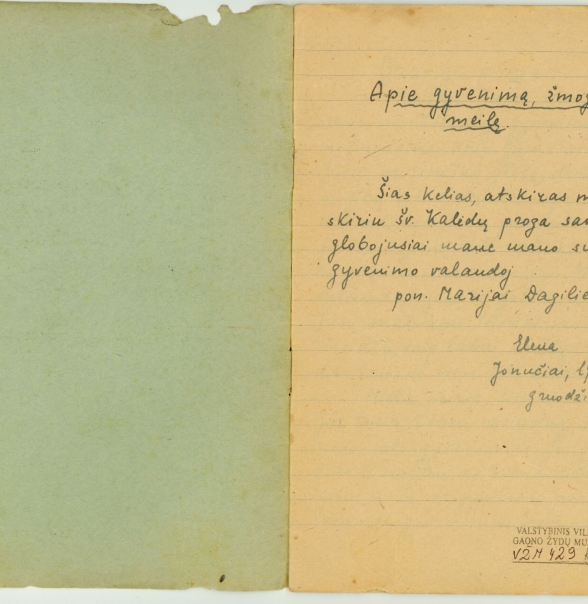 Apie gyvenimą, žmog
meilę.
Šias kelias, atskiras m
skiriu šv. Kalėdų proga sa
globojusiai mane mano su
gyvenimo valandoj
pon. Marijai Dagilie
Elena
Jonučiai, 19
gruodži
VALSTYBINIS VIL
GAONO ŽYDŲ MU
VŽM 429